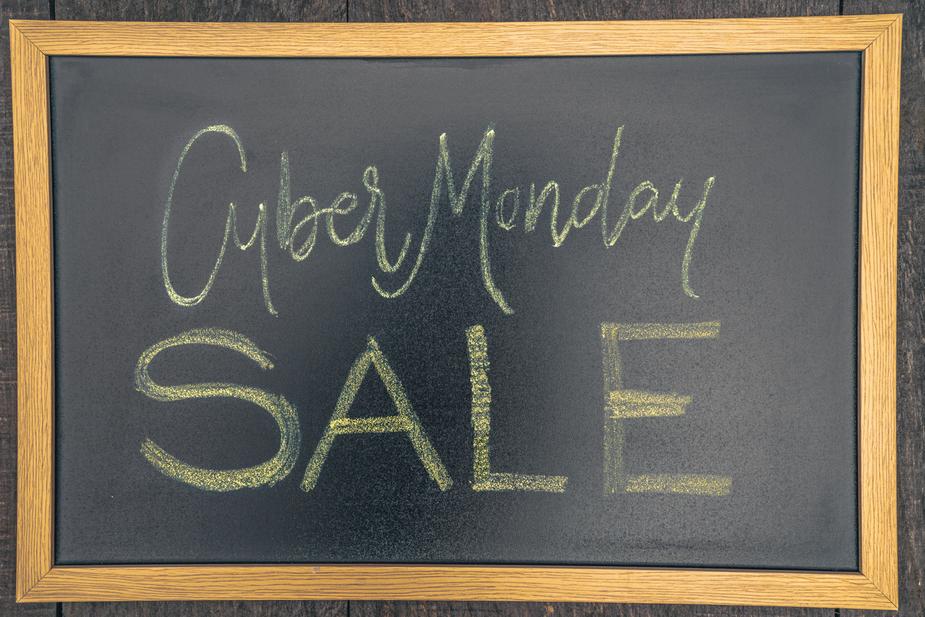 Cyber Monday
SALE